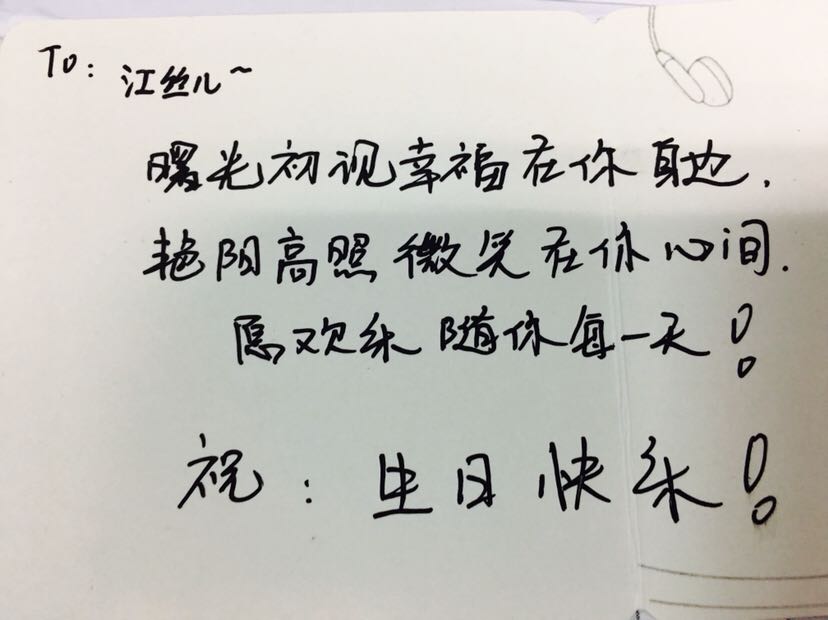 To: 江丝儿~
曙光初现幸福在你身边,
艳阳高照微笑在你心间.
愿欢乐随你每一天!
祝:生日快乐!